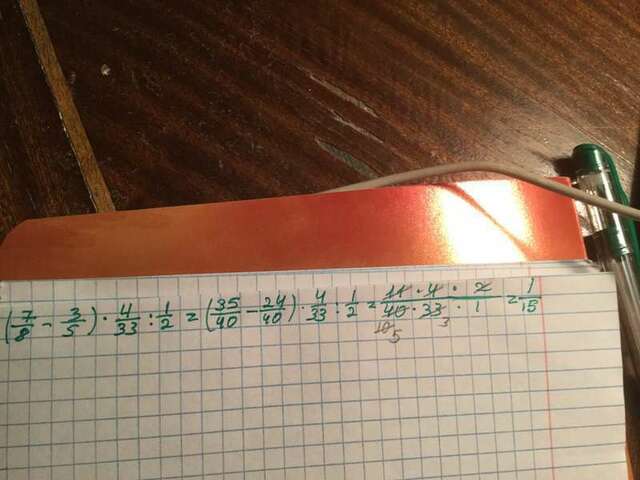 (7/8 - 3/5) · 4/33 : 1/2 = (35/40 - 24/40) · 4/33 : 1/2 = 11 · 4 · 2 / 40 · 33 · 1 = 1/15
10 5 3